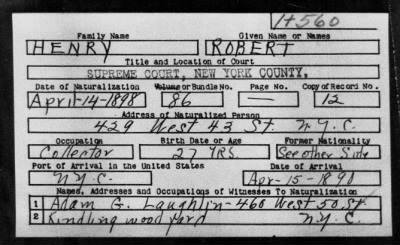 H+560
Family Name Given Name or Names
HENRY ROBERT
Title and Location of Court
SUPREME COURT, NEW YORK COUNTY,
Date of Naturalization Volume or Bundle No. Page No. Copy of Record No.
April-14-1898 86 — 12
Address of Naturalized Person
429 West 43 St. N.Y.C.
Occupation Birth Date or Age Former Nationality
Collector 27 YRS See other Side
Port of Arrival in the United States Date of Arrival
N.Y.C. Apr-15-1890
Names, Addresses and Occupations of Witnesses To Naturalization
1 Adam G. Laughlin-460 West 50 St.
2 Kindling wood yard N.Y.C.